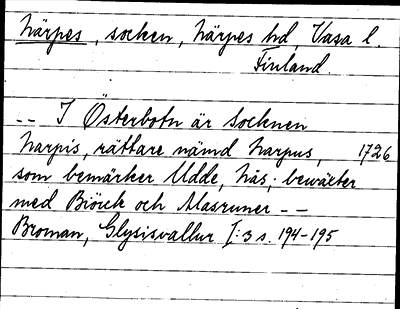 Närpes, socken, Närpes hd, Vasa l.
Finland.
-- I Österbotn är Socknen
Narpis, rättare nämd Narpus, 1726
som bemärker Udde, Näs; bewäxter
med Biörk och Alasruner --
Broman, Glysisvallur I:3 s. 194-195